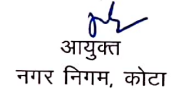 आयुक्त
नगर निगम, कोटा